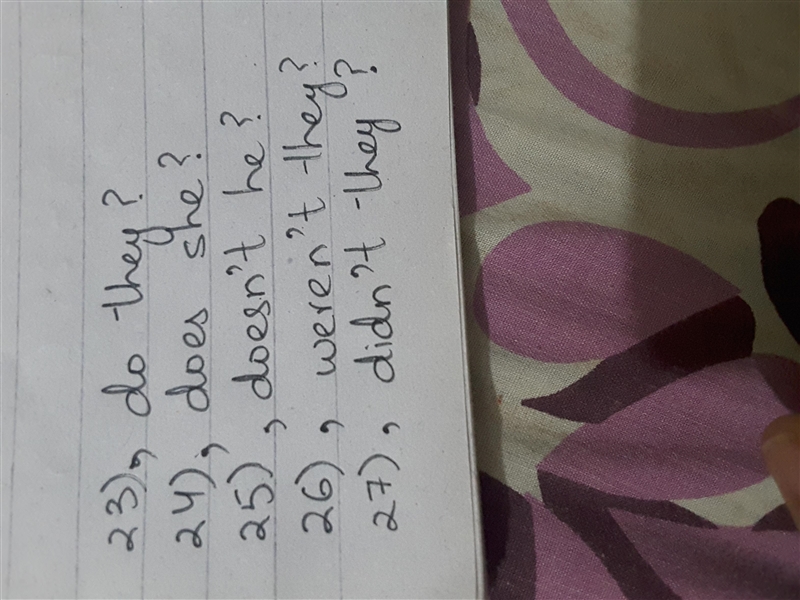 23), do they?
24), does she?
25), doesn't he?
26), weren't they?
27), didn't they?